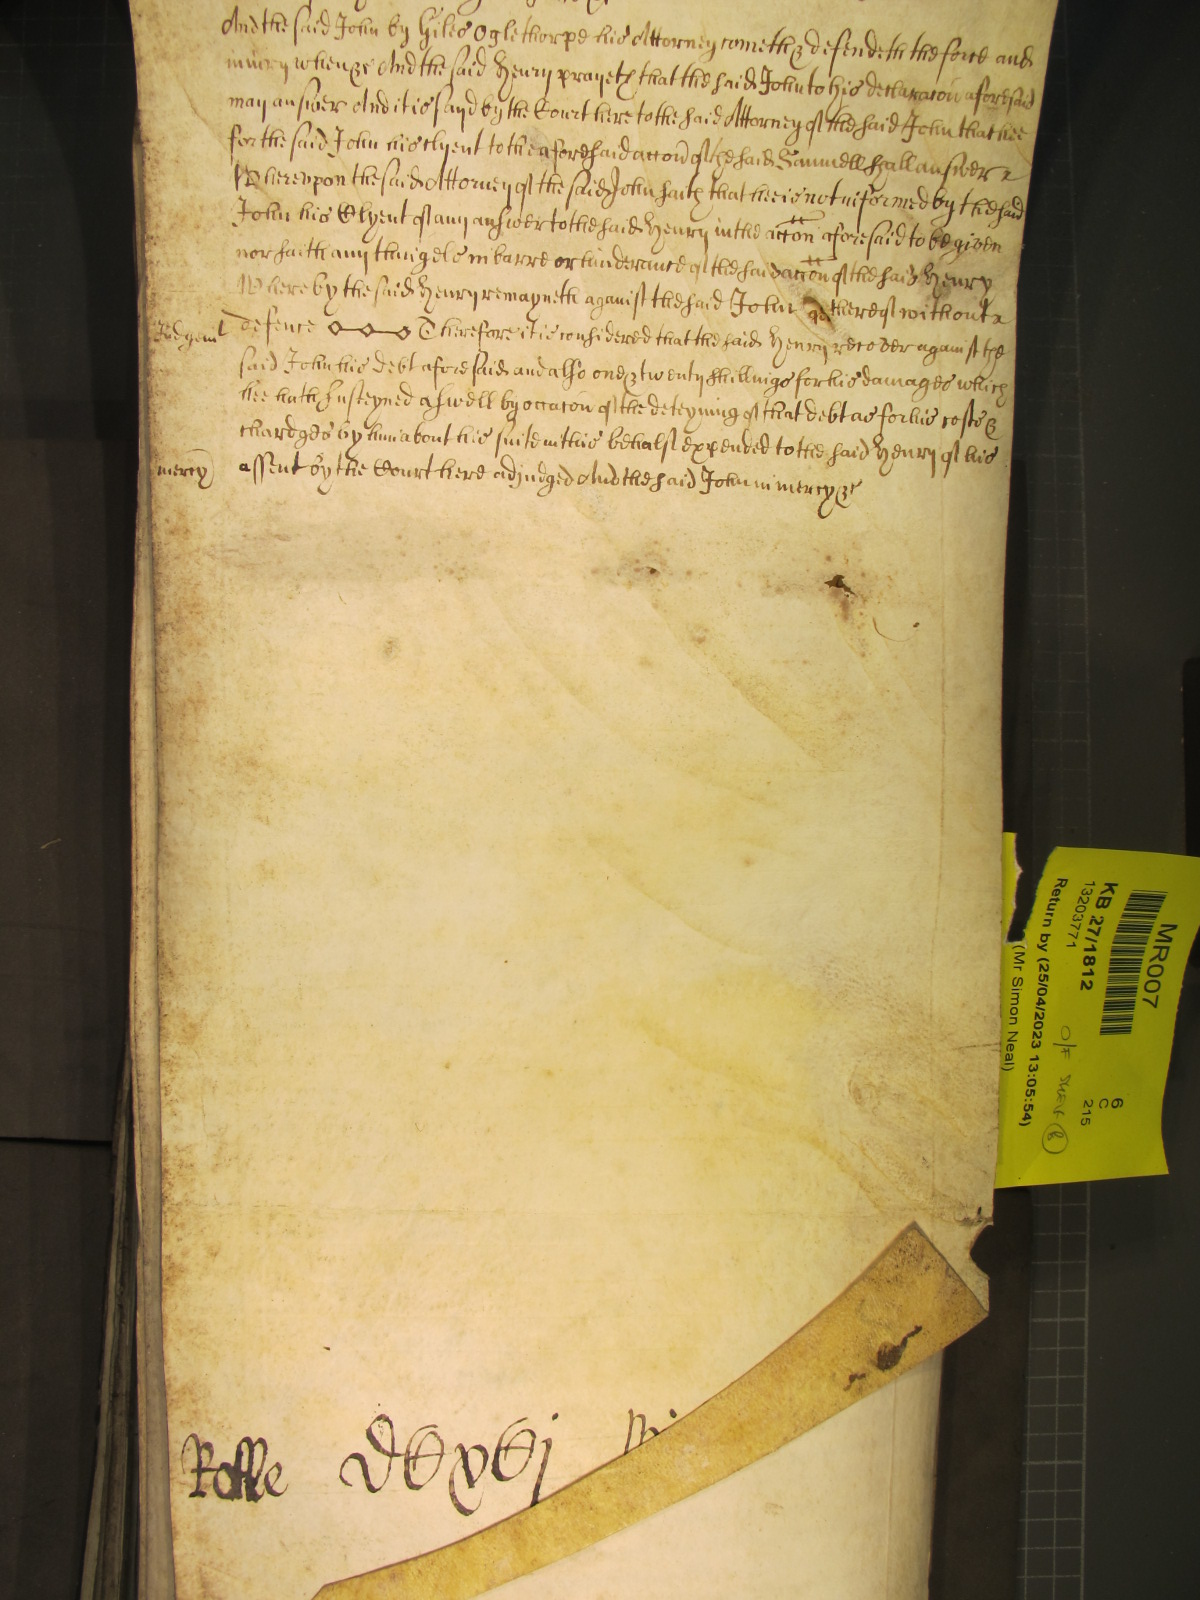 And the said John by Giles Oglethorpe his Attorney cometh & defendeth the force and
iniury when &c And the said Henry prayeth that the said John to his declaracon aforesaid
may answer And it is sayd by the Court here to the said Attorney of the said John that hee
for the said John his clyent to the aforesaid accon of the said Samuell Hall answer
Wherevpon the said Attorney of the said John saith that hee is not informed by the said
John his Clyent of any answer to the said Henry in the accon aforesaid to be given
nor saith any thing els in barre or hinderance of the said accon of the said Henry
Whereby the said Henry remayneth against the said John thereof without
Judgemt defence Therefore it is considered that the said Henry recover against the
said John his debt aforesaid and also one & twenty shillings for his damages which
hee hath susteyned aswell by occacon of the deteyning of that debt as for his costs &
chardges by him about his suite in this behalf expended to the said Henry of his
mercy assent by the Court here adjudged And the said John in mercy &c
Rolle
MR007
KB 27/1812
13203771
Return by (25/04/2023 13:05:54)
(Mr Simon Neal)
6
C
215
O/F SHELF